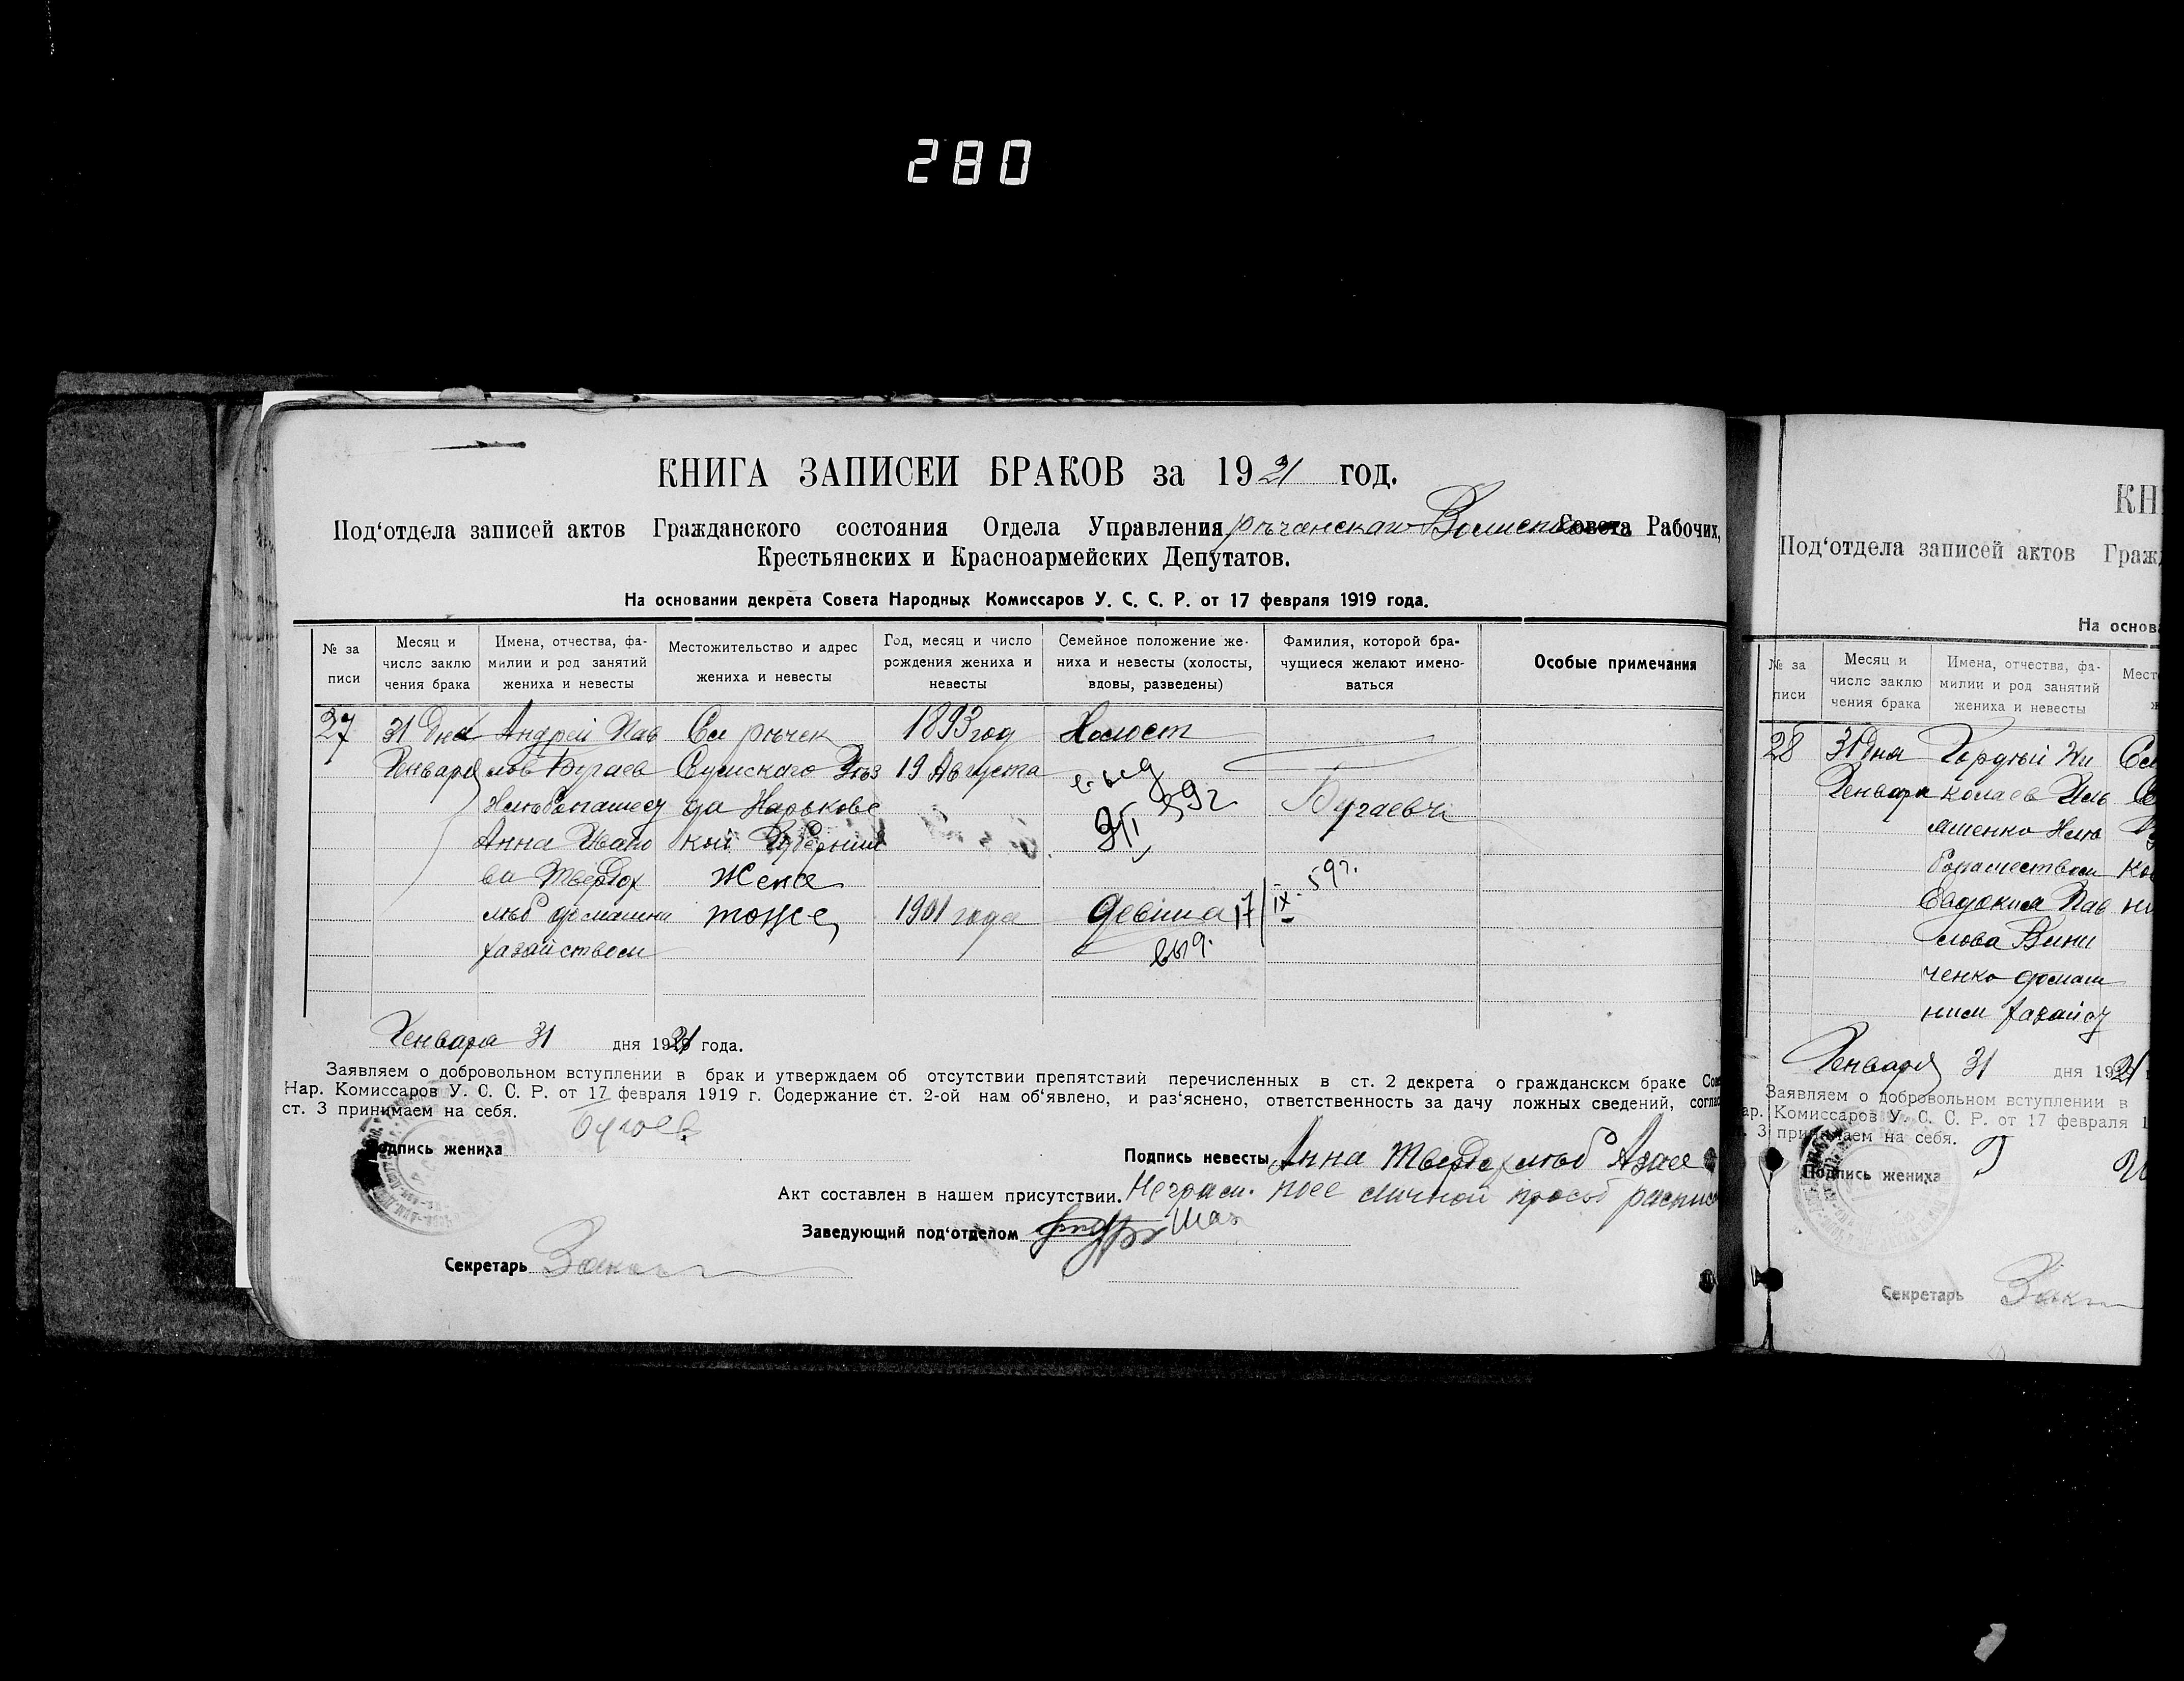 280
КНИГА ЗАПИСЕЙ БРАКОВ за 1921 год.
Под‘отдела записей актов Гражданского состояния Отдела Управления Рѣчанскаго Совета Рабочих,
Крестьянских и Красноармейских Депутатов.
На основании декрета Совета Народных Комиссаров У. С. С. Р. от 17 февраля 1919 года.
№ за писи
Месяц и число заклю чения брака
Имена, отчества, фа- милии и род занятий жениха и невесты
Местожительство и адрес жениха и невесты
Год, месяц и число рождения жениха и невесты
Семейное положение же- ниха и невесты (холосты, вдовы, разведены)
Фамилия, которой бра- чущиеся желают имено- ваться
Особые примечания
27 31 дня Андрей Пав Сел Рѣчек 1893 год Холост
Января лов Бугаев Сумскаго Уѣз 19 Августа
Хлѣбопашец да Харьковс 59г Бугаевы
Анна Ивано кой Губернии
ва Твердох Жена 59г.
лѣб домашни тоже 1901 года девица 17/IX
хазайством выд.
Января 31 дня 1921 года.
Заявляем о добровольном вступлении в брак и утверждаем об отсутствии препятствий перечисленных в ст. 2 декрета о гражданском браке Сове
Нар. Комиссаров У. С. С. Р. от 17 февраля 1919 г. Содержание ст. 2-ой нам об‘явлено, и раз‘яснено, ответственность за дачу ложных сведений, соглас
ст. 3 принимаем на себя.
Подпись жениха Бугаев
Подпись невесты Анна Твердохлѣб
Акт составлен в нашем присутствии. Неграм. личной распис
Заведующий под‘отделом
Секретарь
КН
Под‘отдела записей актов Гражд
На основа
№ за писи
Месяц и число заклю чения брака
Имена, отчества, фа- милии и род занятий жениха и невесты
Мест
28 31 дня Гордѣй Ни Сел
Января колаев Иль
яшенко Хлѣ
бопашеством
Евдокия Пав
лова Вини
ченко домаш
ним хазайст
Января 31 дня 1921
Заявляем о добровольном вступлении в
ар. Комиссаров У. С. С. Р. от 17 февраля 1
. 3 принимаем на себя.
Подпись жениха Г
Секретарь